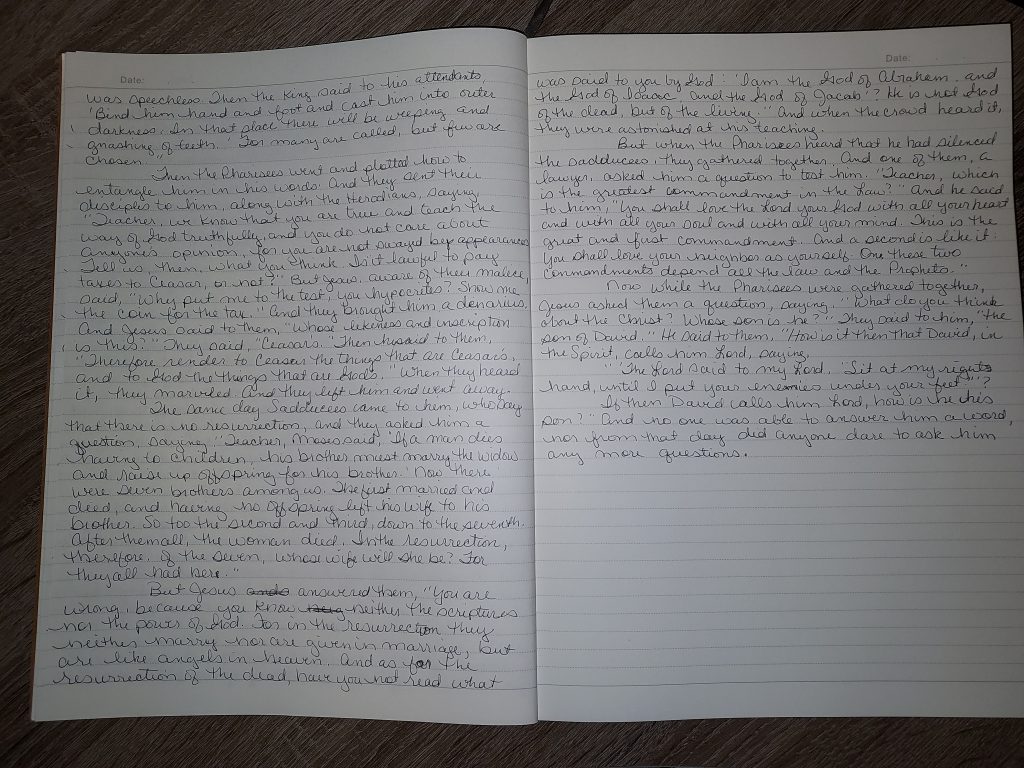 Date:
was speechless. Then the King said to his attendants
'Bind him hand and foot and cast him into outer
darkness. In that place there will be weeping and
gnashing of teeth.' For many are called, but few are
chosen."
Then the Pharisees went and plotted how to
entangle him in his words. And they sent their
disciples to him, along with the Herodians, saying,
"Teacher, we know that you are true and teach the
way of God truthfully, and you do not care about
anyone's opinion, for you are not swayed by appearances.
Tell us, then, what you think. Is it lawful to pay
taxes to Ceasar, or not?" But Jesus, aware of their malice,
said, "Why put me to the test, you hypocrites? Show me
the coin for the tax." And they brought him a denarius.
And Jesus said to them, "Whose likeness and inscription
is this?" They said, "Ceasar's." Then he said to them,
"Therefore render to Ceasar the things that are Ceasar's,
and to God the things that are God's." When they heard
it, they marveled. And they left him and went away.
The same day Sadducees came to him, who say
that there is no resurrection, and they asked him a
question, saying "Teacher, Moses said, 'If a man dies
having no children, his brother must marry the widow
and raise up offspring for his brother.' Now there
were seven brothers among us. The first married and
died, and having no offspring left his wife to his
brother. So too the second and third, down to the seventh.
After them all, the woman died. In the resurrection,
therefore, of the seven, whose wife will she be? For
they all had her."
But Jesus answered them, "You are
wrong, because you know neither the scriptures
nor the power of God. For in the resurrection they
neither marry nor are given in marriage, but
are like angels in heaven. And as for the
resurrection of the dead, have you not read what
Date:
was said to you by God: 'I am the God of Abraham, and
the God of Isaac, and the God of Jacob'? He is not God
of the dead, but of the living." And when the crowd heard it,
they were astonished at his teaching.
But when the Pharisees heard that he had silenced
the sadducees, they gathered together. And one of them, a
lawyer, asked him a question to test him. "Teacher, which
is the greatest commandment in the Law?" And he said
to him, "You shall love the Lord your God with all your heart
and with all your soul and with all your mind. This is the
great and first commandment. And a second is like it:
You shall love your neighbor as yourself. One these two
commandments depend all the law and the Prophets."
Now while the Pharisees were gathered together,
Jesus asked them a question, saying, "What do you think
about the Christ? Whose son is he?" They said to him, "The
son of David." He said to them, "How is it then that David, in
the Spirit, calls him Lord, saying,
"'The Lord said to my Lord, "Sit at my right
hand, until I put your enemies under your feet"'?
If then David calls him Lord, how is he his
son?" And no one was able to answer him a word,
nor from that day did anyone dare to ask him
any more questions.